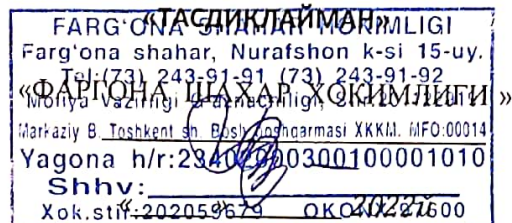 «ТАСДИҚЛАЙМАН»
FARG'ONA SHAHAR HOKIMLIGI
Farg'ona shahar, Nurafshon k-si 15-uy.
Tel:(73) 243-91-91 (73) 243-91-92
«ФАРҒОНА ШАҲАР ҲОКИМЛИГИ »
Moliya Vazirligi
Markaziy B. Toshkent sh. Bosh boshqarmasi XKKM. MFO:00014
Yagona h/r:
Shhv:
Xok.stir:202059679 2022й